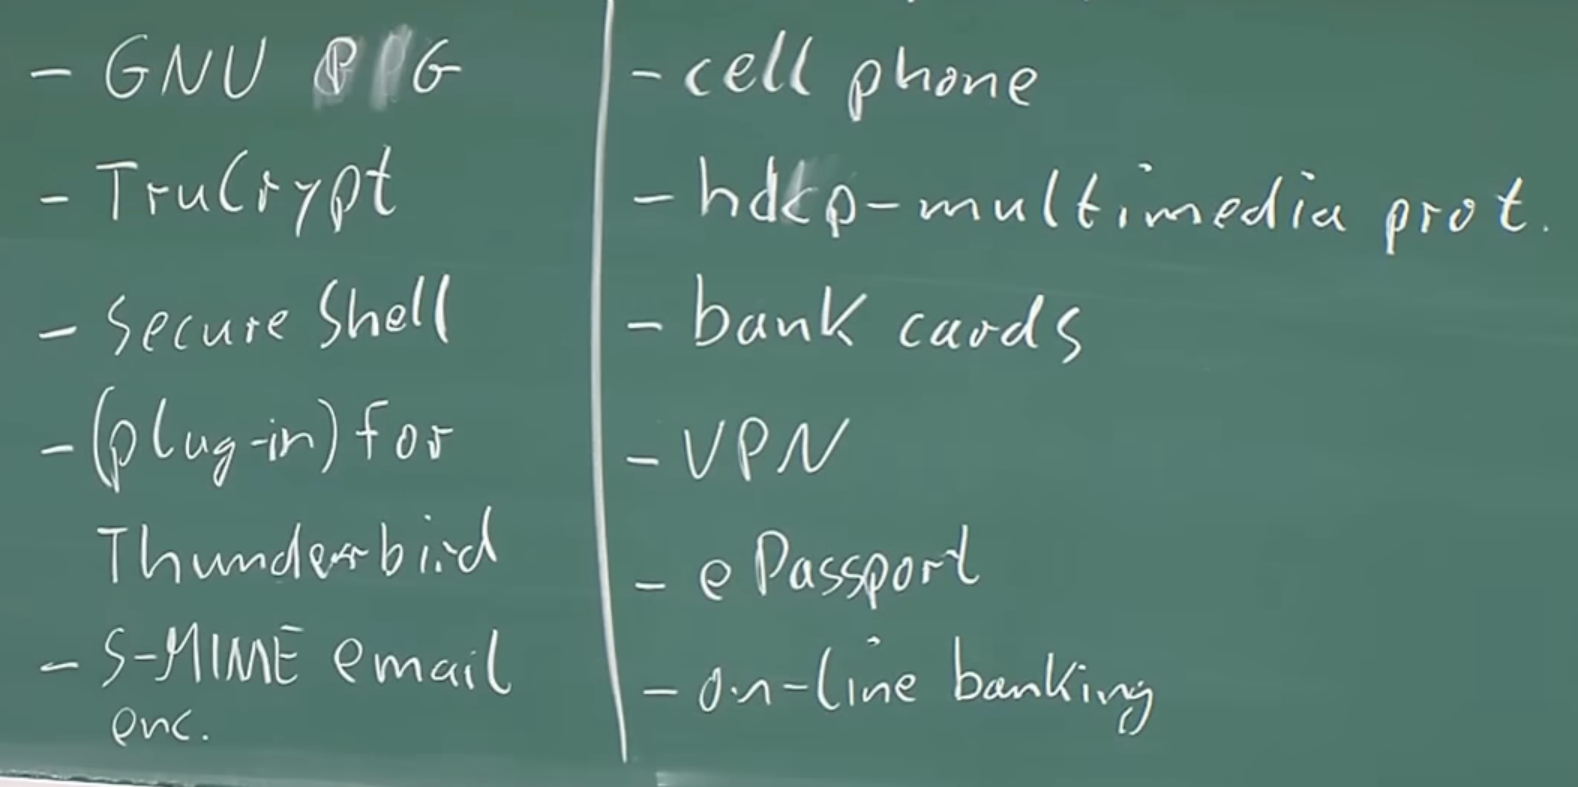 - GNU P G
- TruCrypt
- Secure Shell
- (plug-in) for
Thunderbird
- S-MIME email
enc.
- cell phone
- hdcp-multimedia prot.
- bank cards
- VPN
- ePassport
- on-line banking